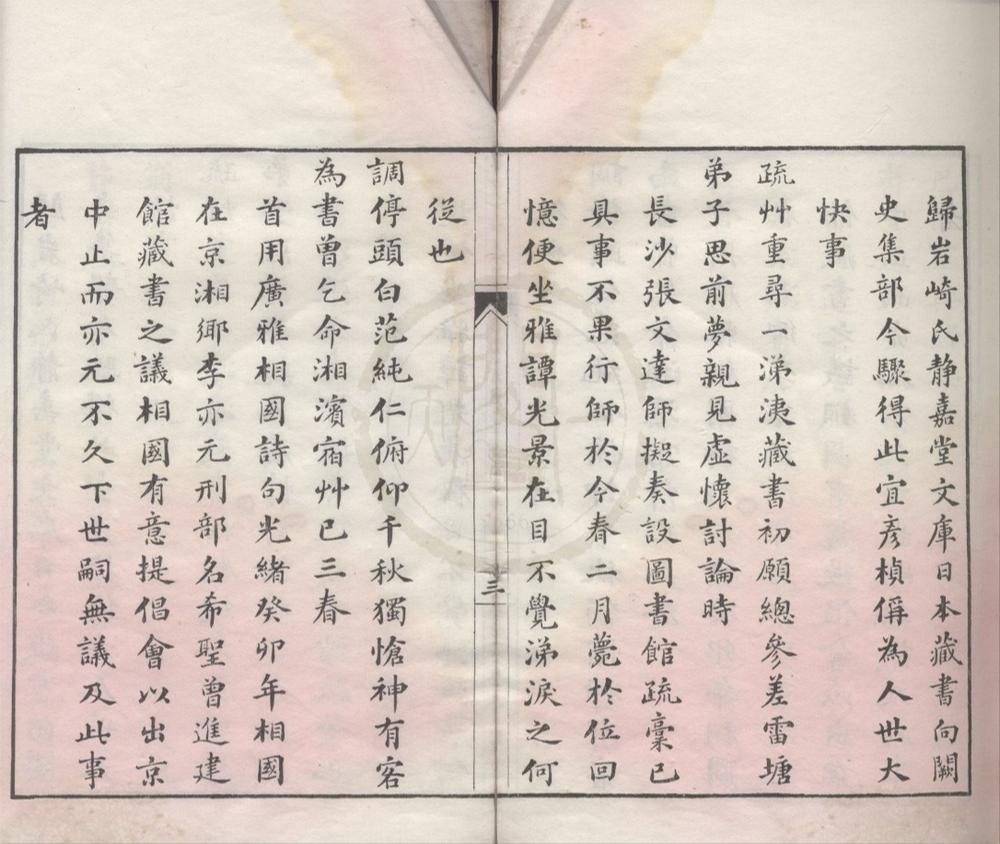 歸岩崎氏静嘉堂文庫日本藏書向闕
史集部今驟得此宜彦楨偁為人世大
快事
疏艸重尋一涕洟藏書初願總參差雷塘
弟子思前夢親見虛懷討論時
長沙張文達師擬奏設圖書館疏稾已
具事不果行師於今春二月薨於位回
憶便坐雅譚光景在目不覺涕淚之何
從也
調停頭白范純仁俯仰千秋獨愴神有客
為書曾乞命湘濱宿艸已三春
首用廣雅相國詩句光緒癸卯年相國
在京湘鄉李亦元刑部名希聖曾進建
館藏書之議相國有意提倡會以出京
中止而亦元不久下世嗣無議及此事
者
三